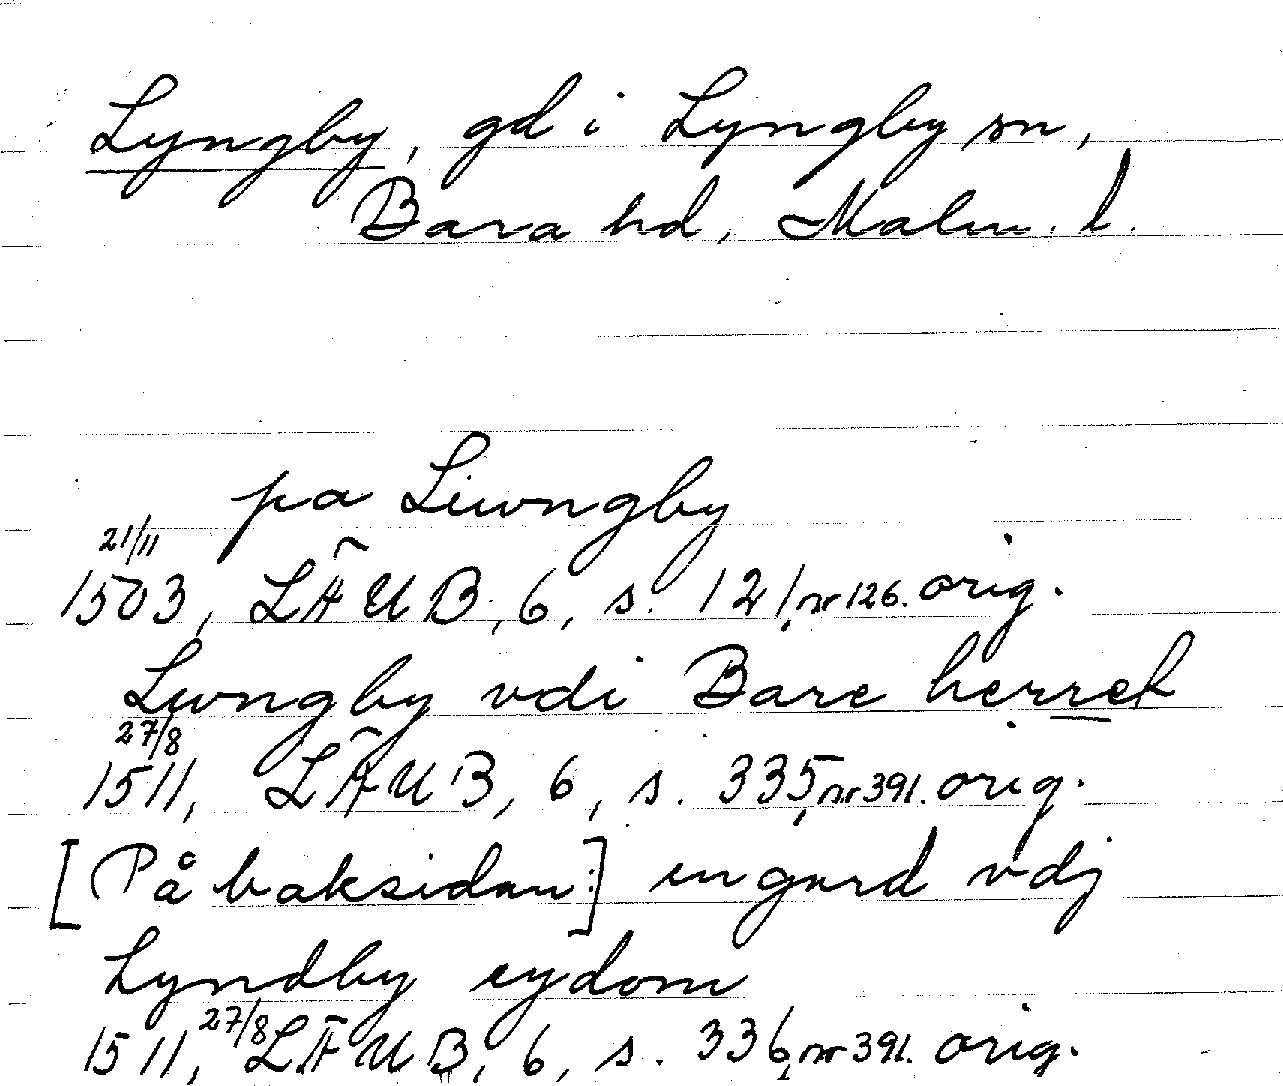 Lyngby, gd i Lyngby sn,
Bara hd, Malm. l.
pa Liwngby
21/11
1503, LÄUB, 6, s. 121, nr 126. orig.
Lwngby vdi Bare herret
27/8
1511, LÄUB, 6, s. 335, nr 391. orig.
[På baksidan:] en gard vdj
Lyndby eydom
1511, 27/8 LÄUB, 6, s. 336, nr 391. orig.